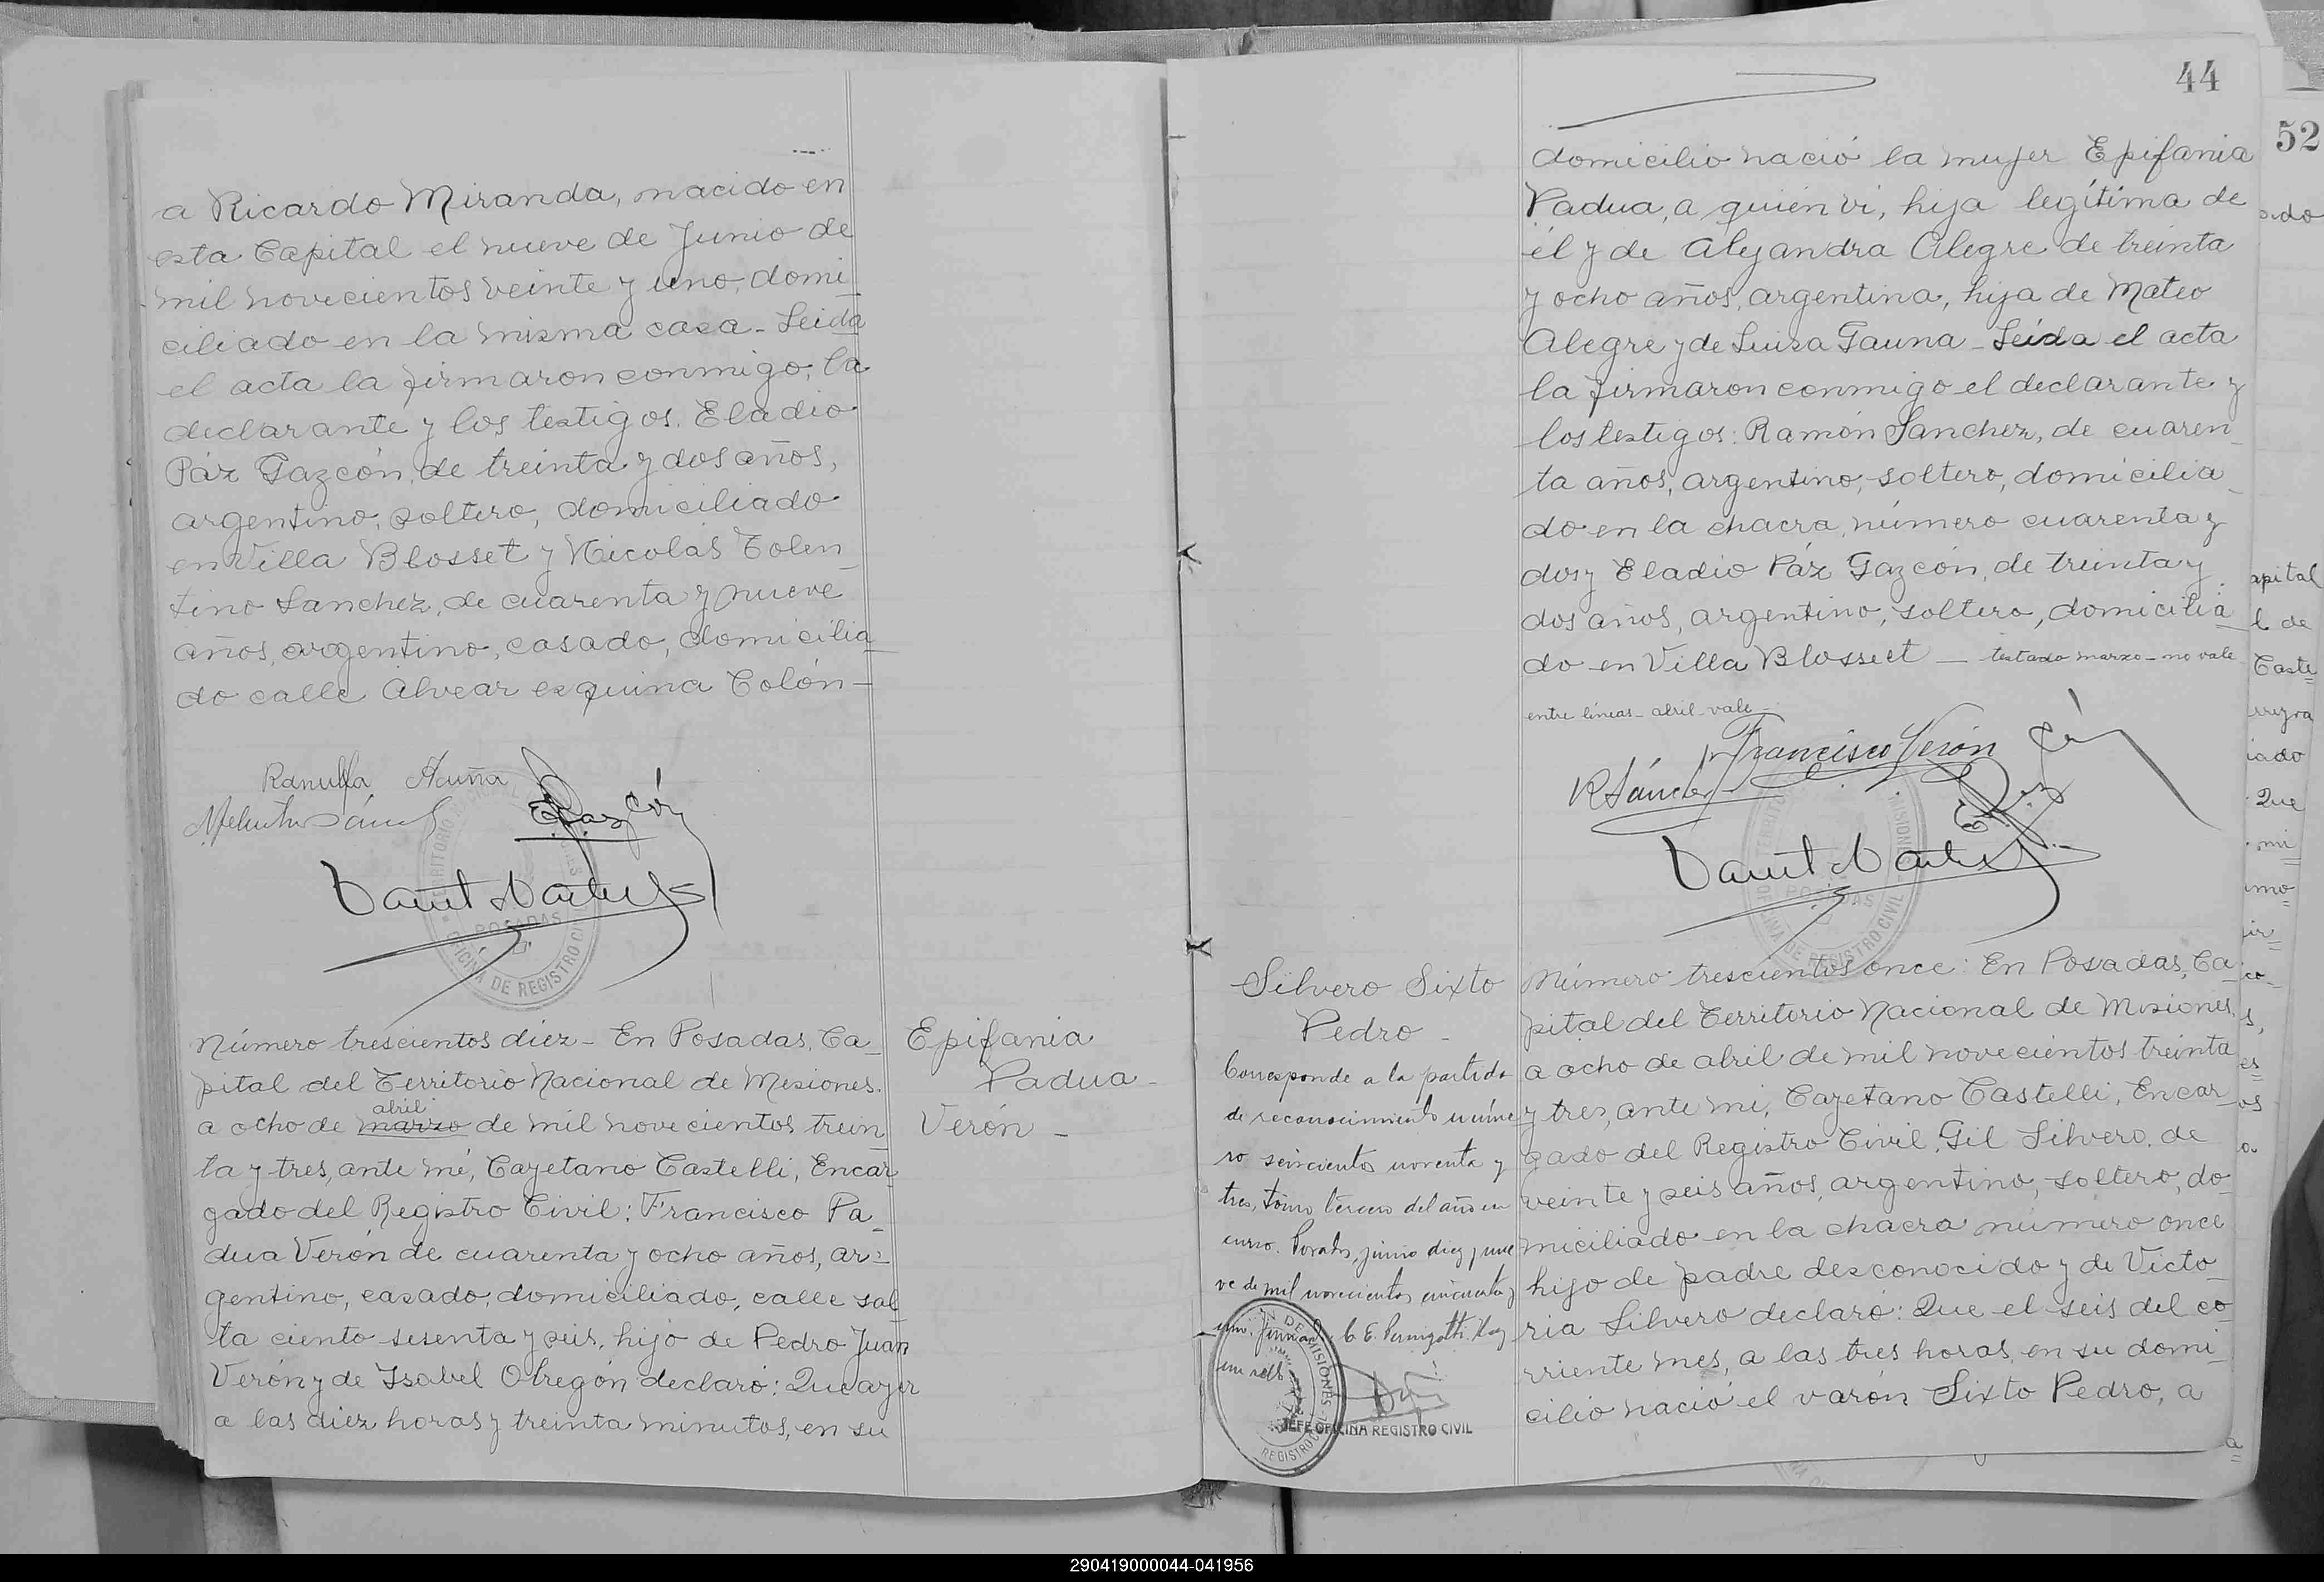 a Ricardo Miranda, nacido en
esta Capital el nueve de Junio de
mil novecientos veinte y uno, domi_
ciliado en la misma casa_ Leida
el acta la firmaron conmigo, la
declarante y los testigos. Eladio
Páz Gazcón, de treinta y dos años,
argentino, soltero, domiciliado
en Villa Blosset y Nicolás Tolen_
tino Sanchez, de cuarenta y nueve
años, argentino, casado, domicilia_
do calle Alvear esquina Colón_
Ranulfa Acuña
POSADAS
OFICINA DE REGISTRO CIVIL
Número trescientos diez_ En Posadas, Ca_
pital del Territorio Nacional de Misiones.
abril
a ocho de marzo de mil novecientos trein
ta y tres, ante mí, Cayetano Castelli, Encar
gado del Registro Civil: Francisco Pa_
dua Verón de cuarenta y ocho años, ar=
gentino, casado, domiciliado, calle Sal
ta ciento sesenta y seis, hijo de Pedro Juan
Verón y de Isabel Obregón declaró: Que ayer
a las diez horas y treinta minutos, en su
Epifania
Padua_
Verón_
44
domicilio nació la mujer Epifania
Padua, a quién ví, hija legítima de
él y de Alejandra Alegre de treinta
y ocho años, argentina, hija de Mateo
Alegre y de Luisa Gauna_ Leída el acta
la firmaron conmigo el declarante y
los testigos: Ramón Sanchez, de cuaren_
ta años, argentino, soltero, domicilia_
do en la chacra, número cuarenta y
dos y Eladio Páz Gazcón, de treinta y
dos años, argentino, soltero, domicilia_
do en Villa Blosset _ testado marzo_ no vale
entre líneas_ abril_ vale_
Francisco Verón
R Sánchez
POSADAS
OFICINA DE REGISTRO CIVIL
Silvero Sixto
Pedro_
Corresponde a la partida
de reconocimiento núme
ro seiscientos noventa y
tres, tomo tercero del año en
curso. Posadas, junio diez y nue
ve de mil novecientos cincuenta y
JEFE OFICINA REGISTRO CIVIL
Número trescientos once: En Posadas, Ca_
pital del Territorio Nacional de Misiones,
a ocho de abril de mil novecientos treinta
y tres, ante mi, Cayetano Castelli, Encar_
gado del Registro Civil, Gil Silvero, de
veinte y seis años, argentino, soltero, do_
miciliado en la chacra número once
hijo de padre desconocido y de Victo_
ria Silvero declaró: Que el seis del co_
rriente mes, a las tres horas en su domi_
cilio nació el varón Sixto Pedro, a
52
apital
l de
Caste=
iado
Que
290419000044-041956